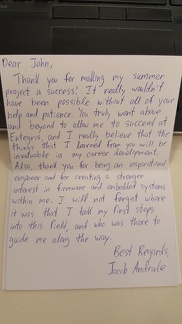 Dear John,
Thank you for making my summer
project a success! It really wouldn't
have been possible without all of your
help and patience. You truly went above
and beyond to allow me to succeed at
and I really believe that the
things that I learned from you will be
invaluable in my career development.
Also, thank you for being an inspirational
engineer and for creating a stronger
interest in firmware and embedded systems
within me. I will not forget where
it was that I took my first steps
into this field, and who was there to
guide me along the way.
Best Regards,
Jacob Andrade